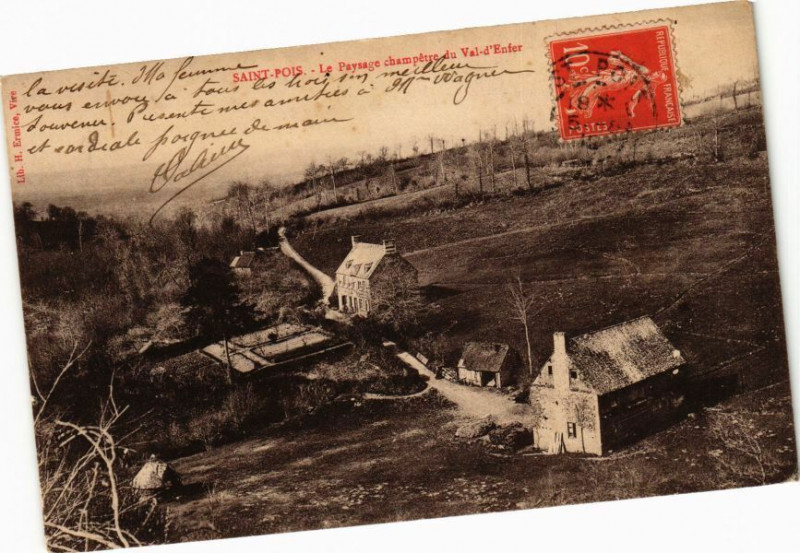 SAINT-POIS. - Le Paysage champêtre du Val-d'Enfer
Lib. H. Ermice, Vire
la visite. Ma femme
vous envoi à tous les trois un meilleur
Souvenir. Présente mes amitiés à Mr Wagner
et cordiale poignée de main
REPUBLIQUE FRANÇAISE
10c
POSTES